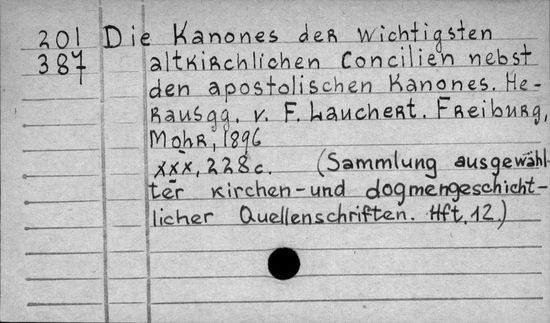 201 Die Kanones der wichtigsten
387 altkirchlichen Concilien nebst
den apostolischen Kanones. He-
rausgg. v. F. Lauchert. Freiburg,
Mohr, 1896
XXX, 228 c. (Sammlung ausgewähl-
ter kirchen- und dogmengeschicht-
licher Quellenschriften. Hft, 12.)